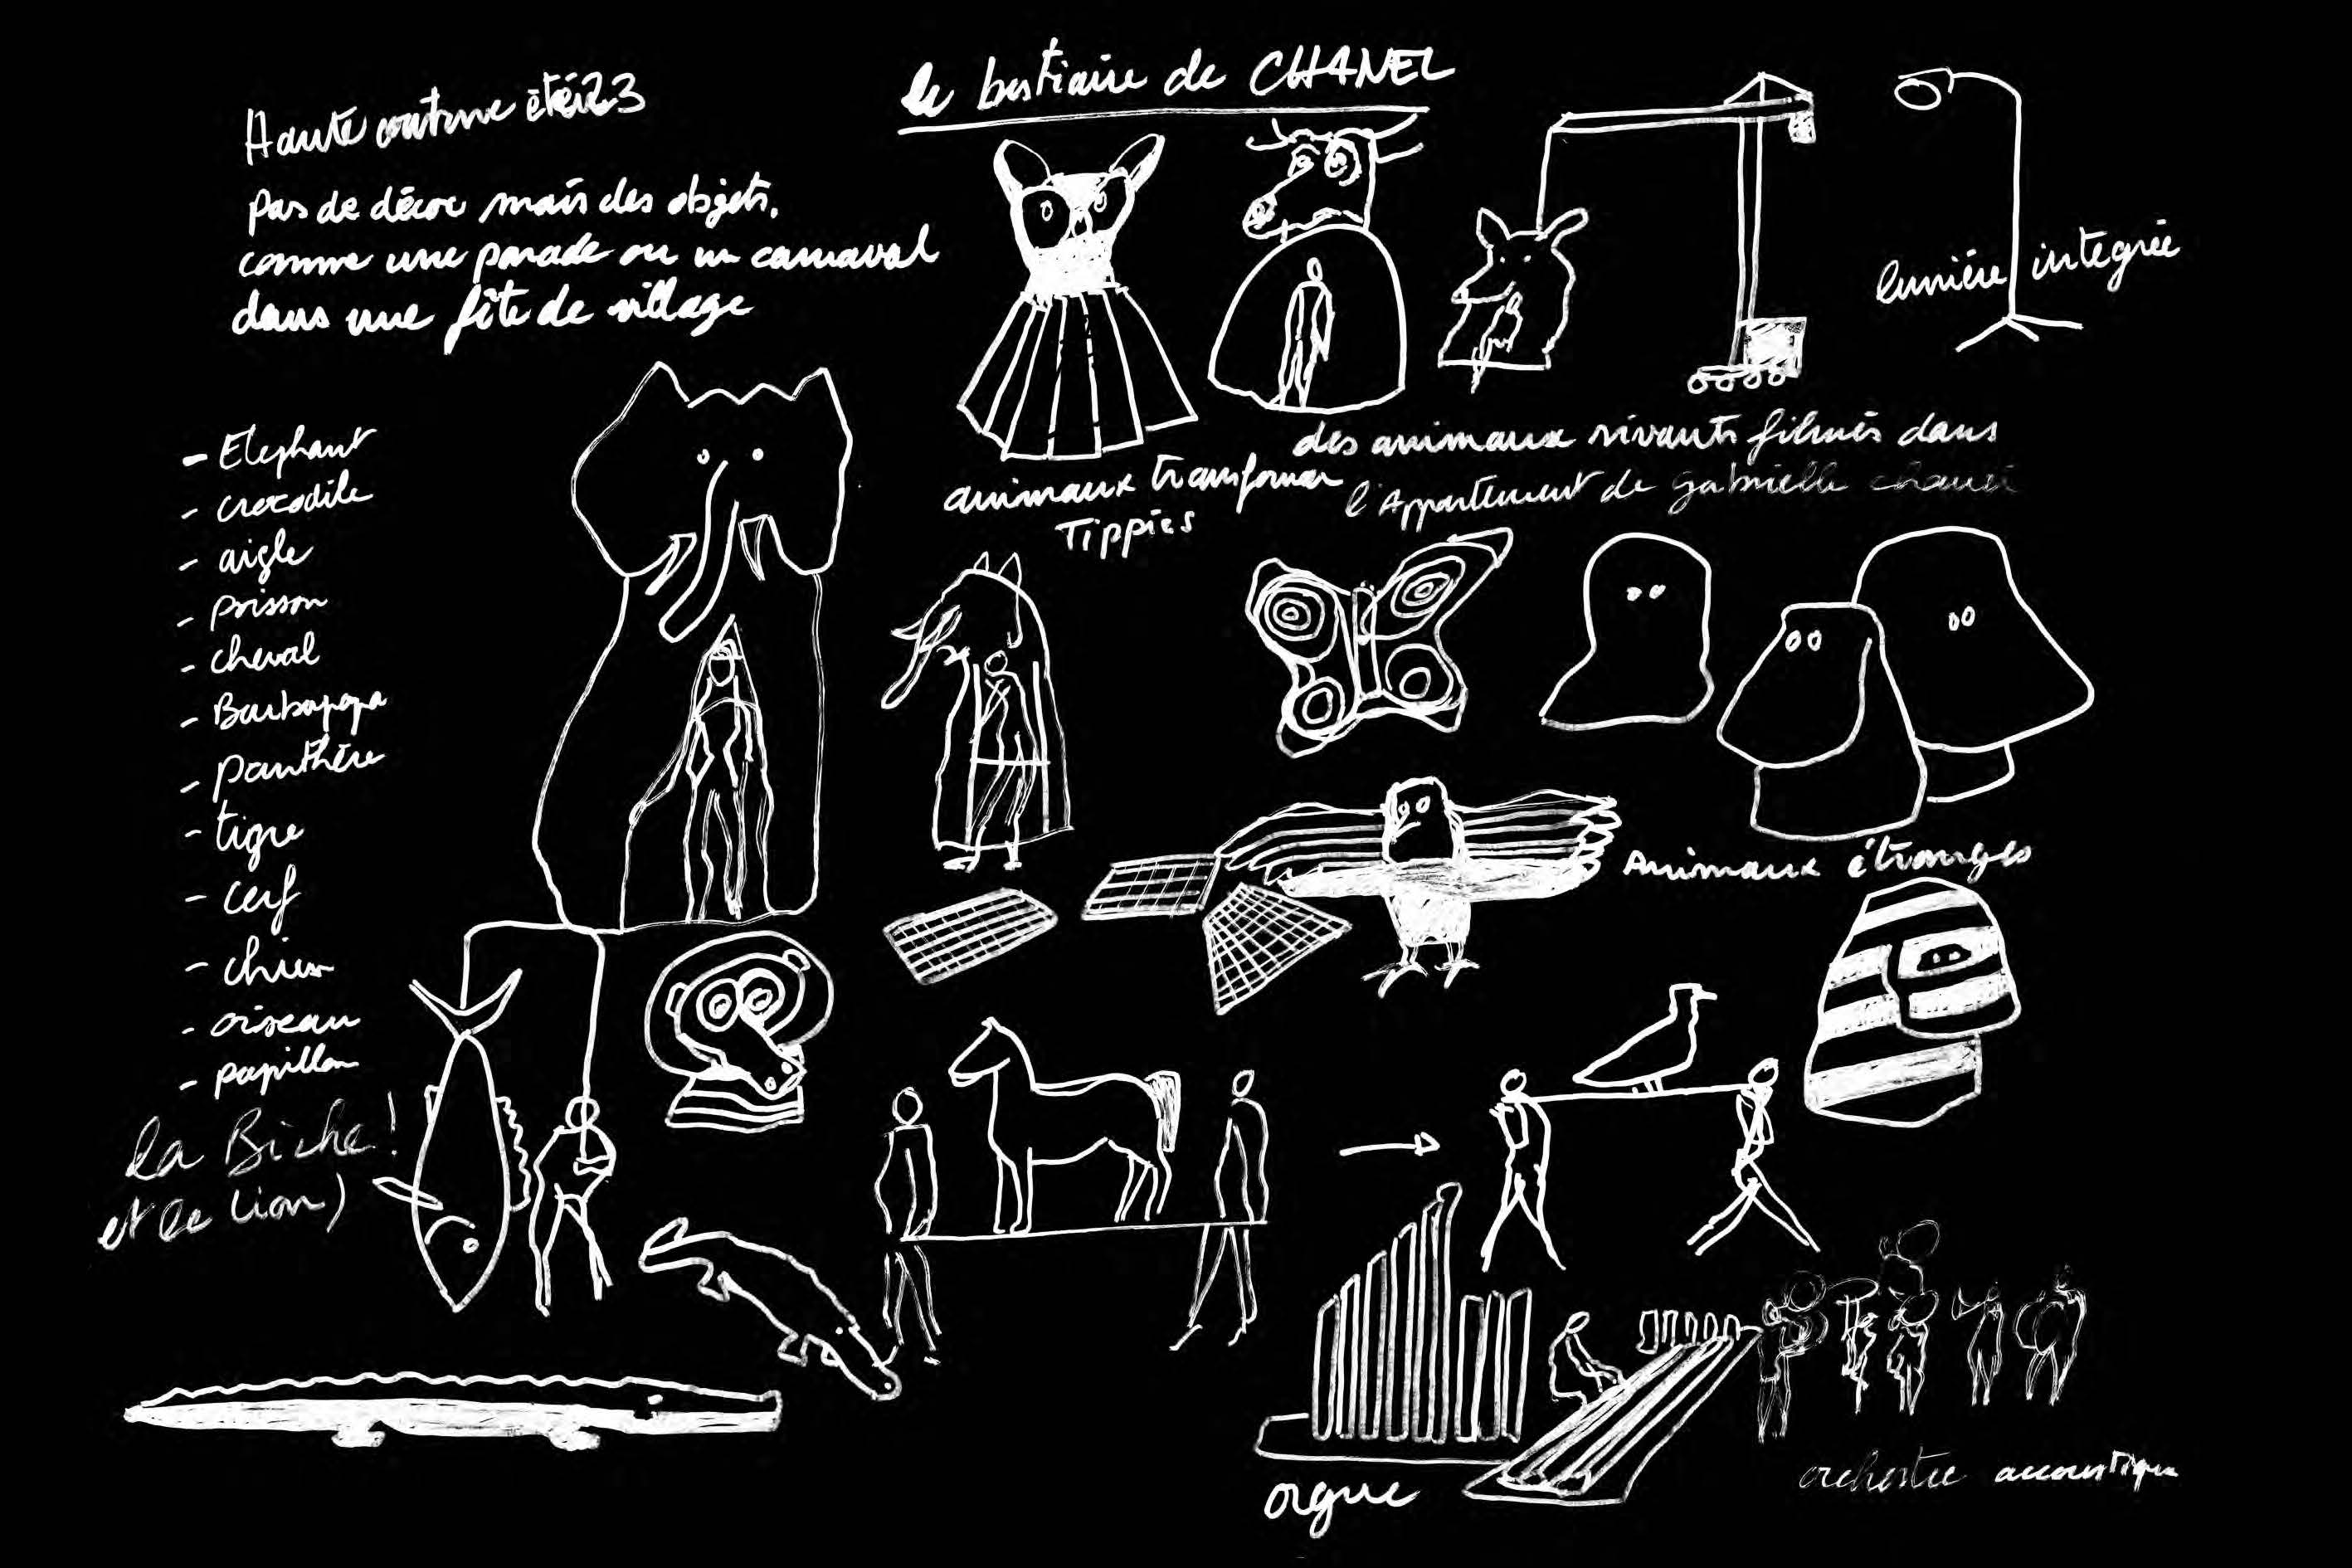 le bestiaire de CHANEL
Haute couture été 23
pas de décor mais des objets.
comme une parade ou un carnaval
dans une fête de village
lumière intégrée
- Elephant
- crocodile
- aigle
- poisson
- cheval
- Barbapapa
- panthère
- tigre
- cerf
- chien
- oiseau
- papillon
la Biche!
et le lion)
animaux transformer
Tippies
des animaux vivants filmés dans
l'Appartement de gabrielle chanel
Animaux étranges
orgue
orchestre accoustique